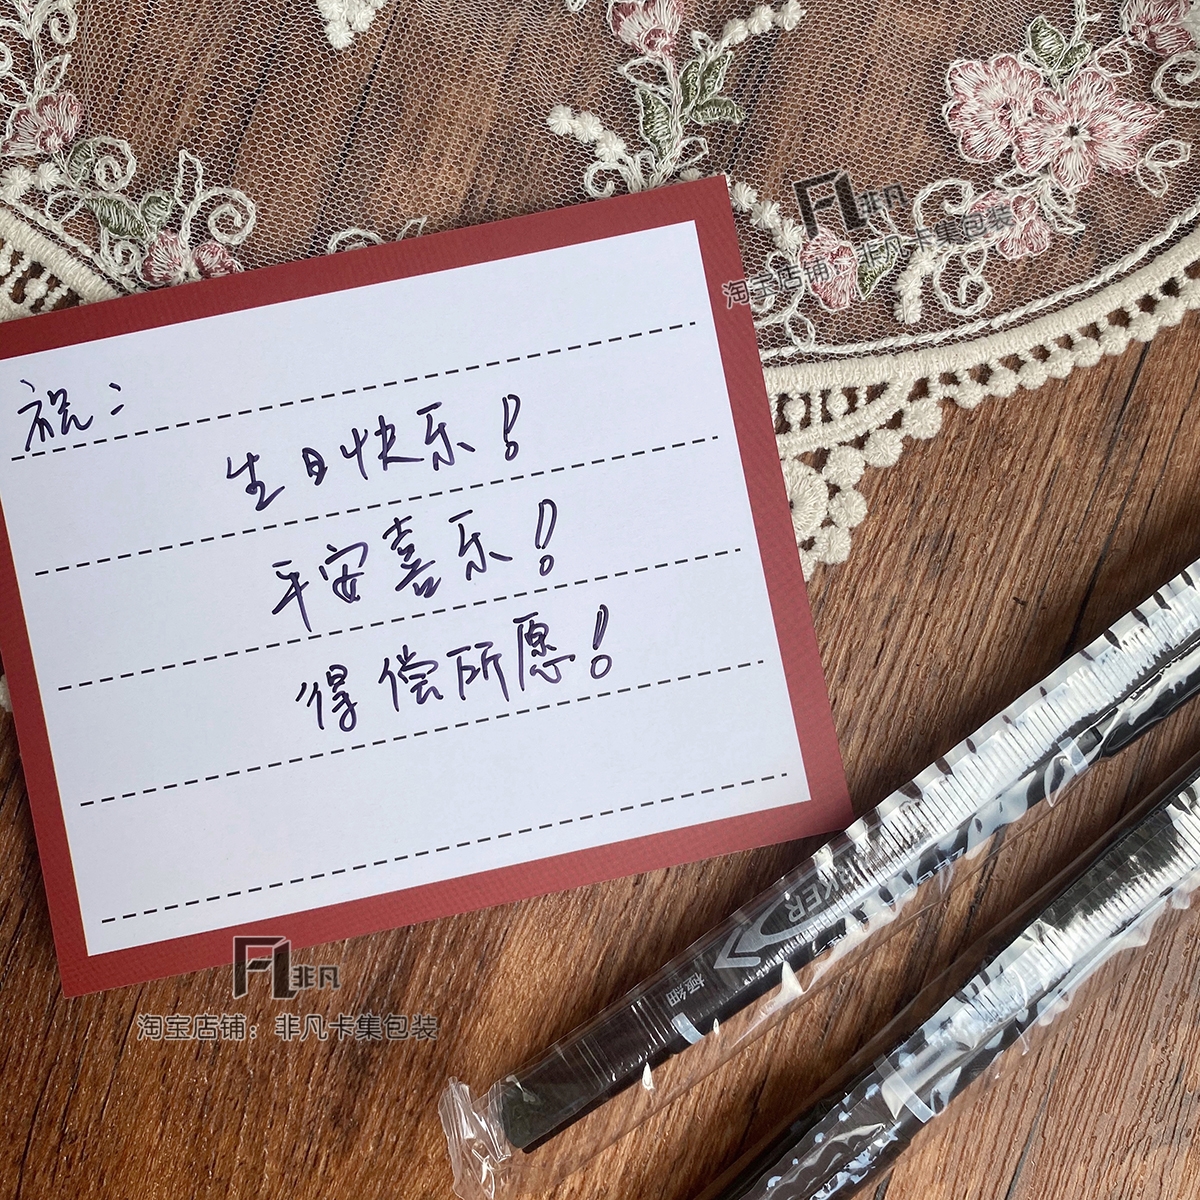 非凡
淘宝店铺：非凡卡集包装
祝：
生日快乐！
平安喜乐！
得偿所愿！
MARKER
極細
非凡
淘宝店铺：非凡卡集包装